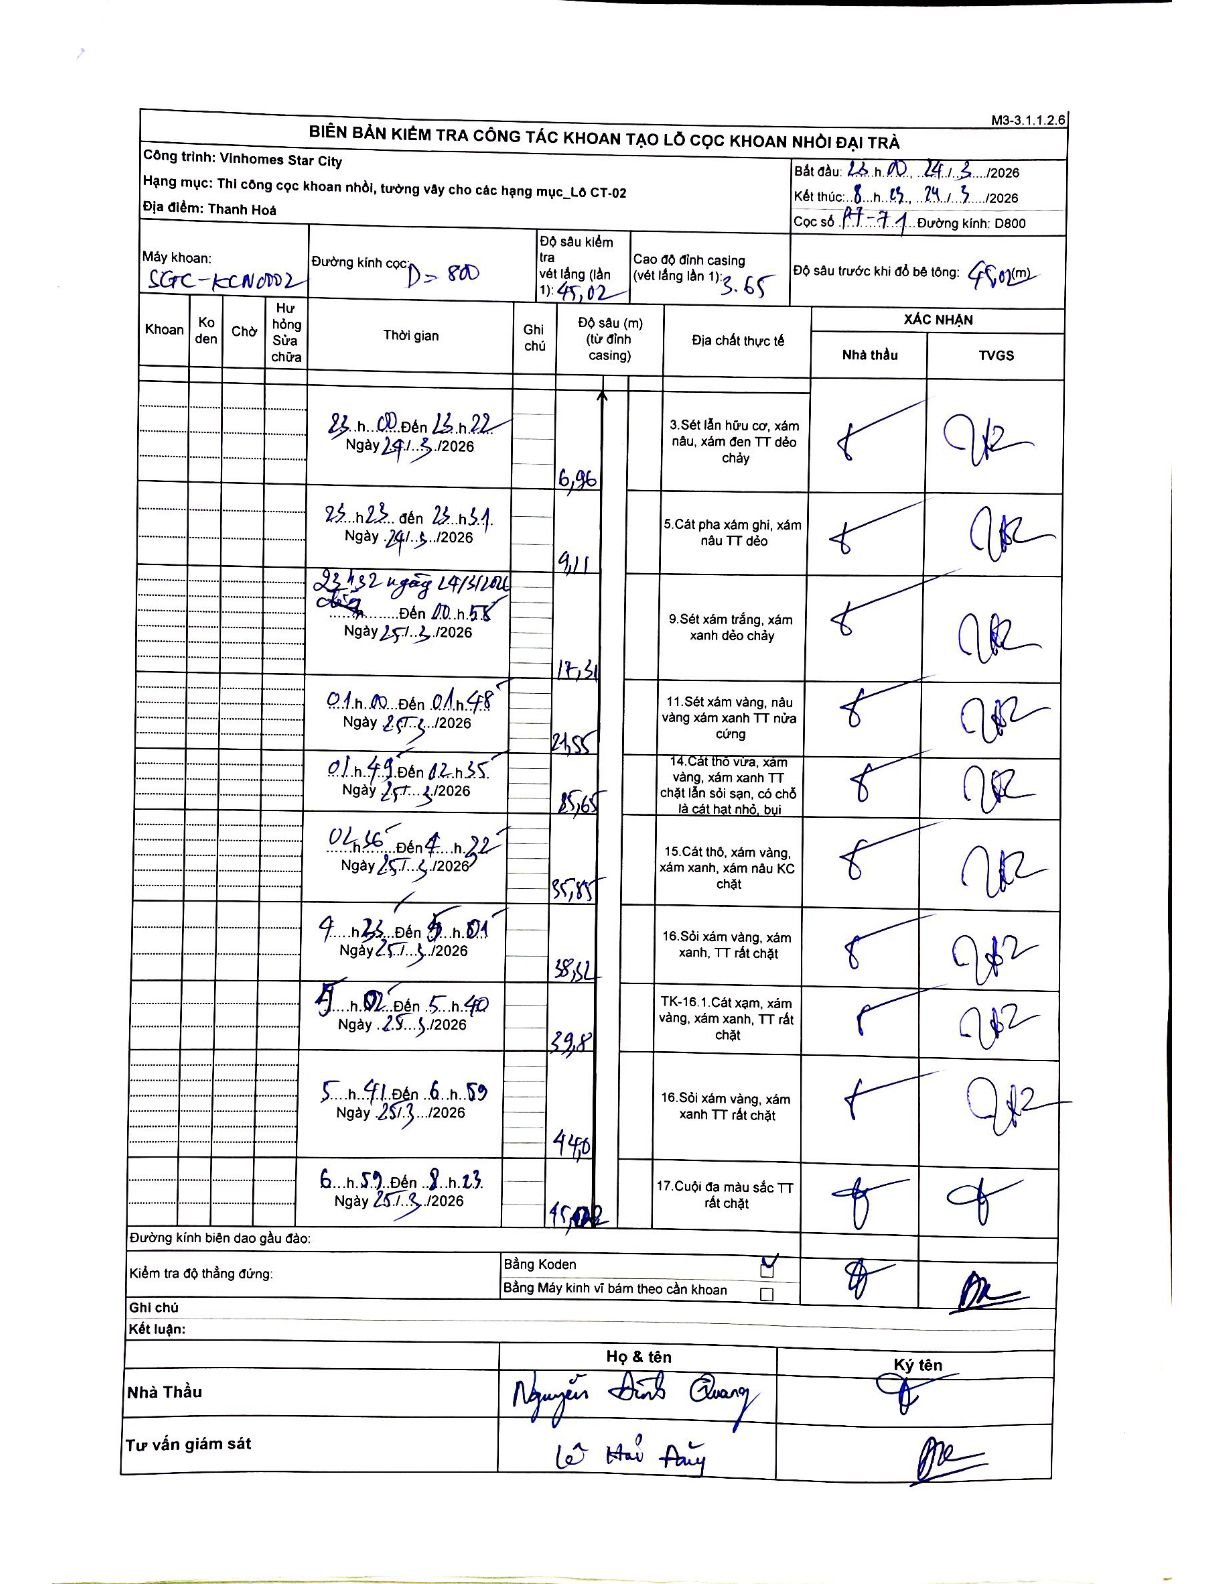 M3-3.1.1.2.6
BIÊN BẢN KIỂM TRA CÔNG TÁC KHOAN TẠO LỖ CỌC KHOAN NHỒI ĐẠI TRÀ
Công trình: Vinhomes Star City
Hạng mục: Thi công cọc khoan nhồi, tường vây cho các hạng mục_Lô CT-02
Địa điểm: Thanh Hoá
Bắt đầu: 23.h.00, ..24./..3..../2026
Kết thúc:..8...h..23, ...24./..3..../2026
Cọc số .P7-71...Đường kính: D800
Máy khoan:
SGTC-KCN0002
Đường kính cọc: D= 800
Độ sâu kiểm tra
vét lắng (lần
1): 45,02
Cao độ đỉnh casing
(vét lắng lần 1): 3.65
Độ sâu trước khi đổ bê tông: 45,02(m)
Khoan
Ko đen
Chờ
Hư hỏng Sửa chữa
Thời gian
Ghi chú
Độ sâu (m)
(từ đỉnh
casing)
Địa chất thực tế
XÁC NHẬN
Nhà thầu
TVGS
23..h..00..Đến 23.h.22
Ngày 24/..3../2026
6,96
3.Sét lẫn hữu cơ, xám
nâu, xám đen TT dẻo
chảy
23...h23... đến 23.h31.
Ngày .24/..3../2026
9,11
5.Cát pha xám ghi, xám
nâu TT dẻo
23h32 ngày 24/3/2026
..........Đến 00..h.58
Ngày 25/..3../2026
17,31
9.Sét xám trắng, xám
xanh dẻo chảy
01.h.00..Đến 01.h.48
Ngày 25/..3../2026
21,55
11.Sét xám vàng, nâu
vàng xám xanh TT nửa
cứng
01.h.49.Đến 02.h35.
Ngày 25/...3/2026
14.Cát thô vừa, xám
vàng, xám xanh TT
chặt lẫn sỏi sạn, có chỗ
là cát hạt nhỏ, bụi
02h36.....Đến 4....h.22
Ngày 25/...3./2026
35,85
15.Cát thô, xám vàng,
xám xanh, xám nâu KC
chặt
4.....h23...Đến 5..h.01
Ngày 25/...3./2026
38,32
16.Sỏi xám vàng, xám
xanh, TT rất chặt
5...h.02.Đến .5..h.40
Ngày .25../..3./2026
39,8
TK-16.1.Cát xạm, xám
vàng, xám xanh, TT rất
chặt
5...h..41.Đến ..6..h..59
Ngày .25/.3.../2026
44,0
16.Sỏi xám vàng, xám
xanh TT rất chặt
6...h.59..Đến ..8..h.23
Ngày 25/..3../2026
17.Cuội đa màu sắc TT
rất chặt
Đường kính biên dao gầu đào:
Kiểm tra độ thẳng đứng:
Bằng Koden
Bằng Máy kinh vĩ bám theo cần khoan
Ghi chú
Kết luận:
Họ & tên
Ký tên
Nhà Thầu
Nguyễn Đình Quang
Tư vấn giám sát
Lê Hải Đăng